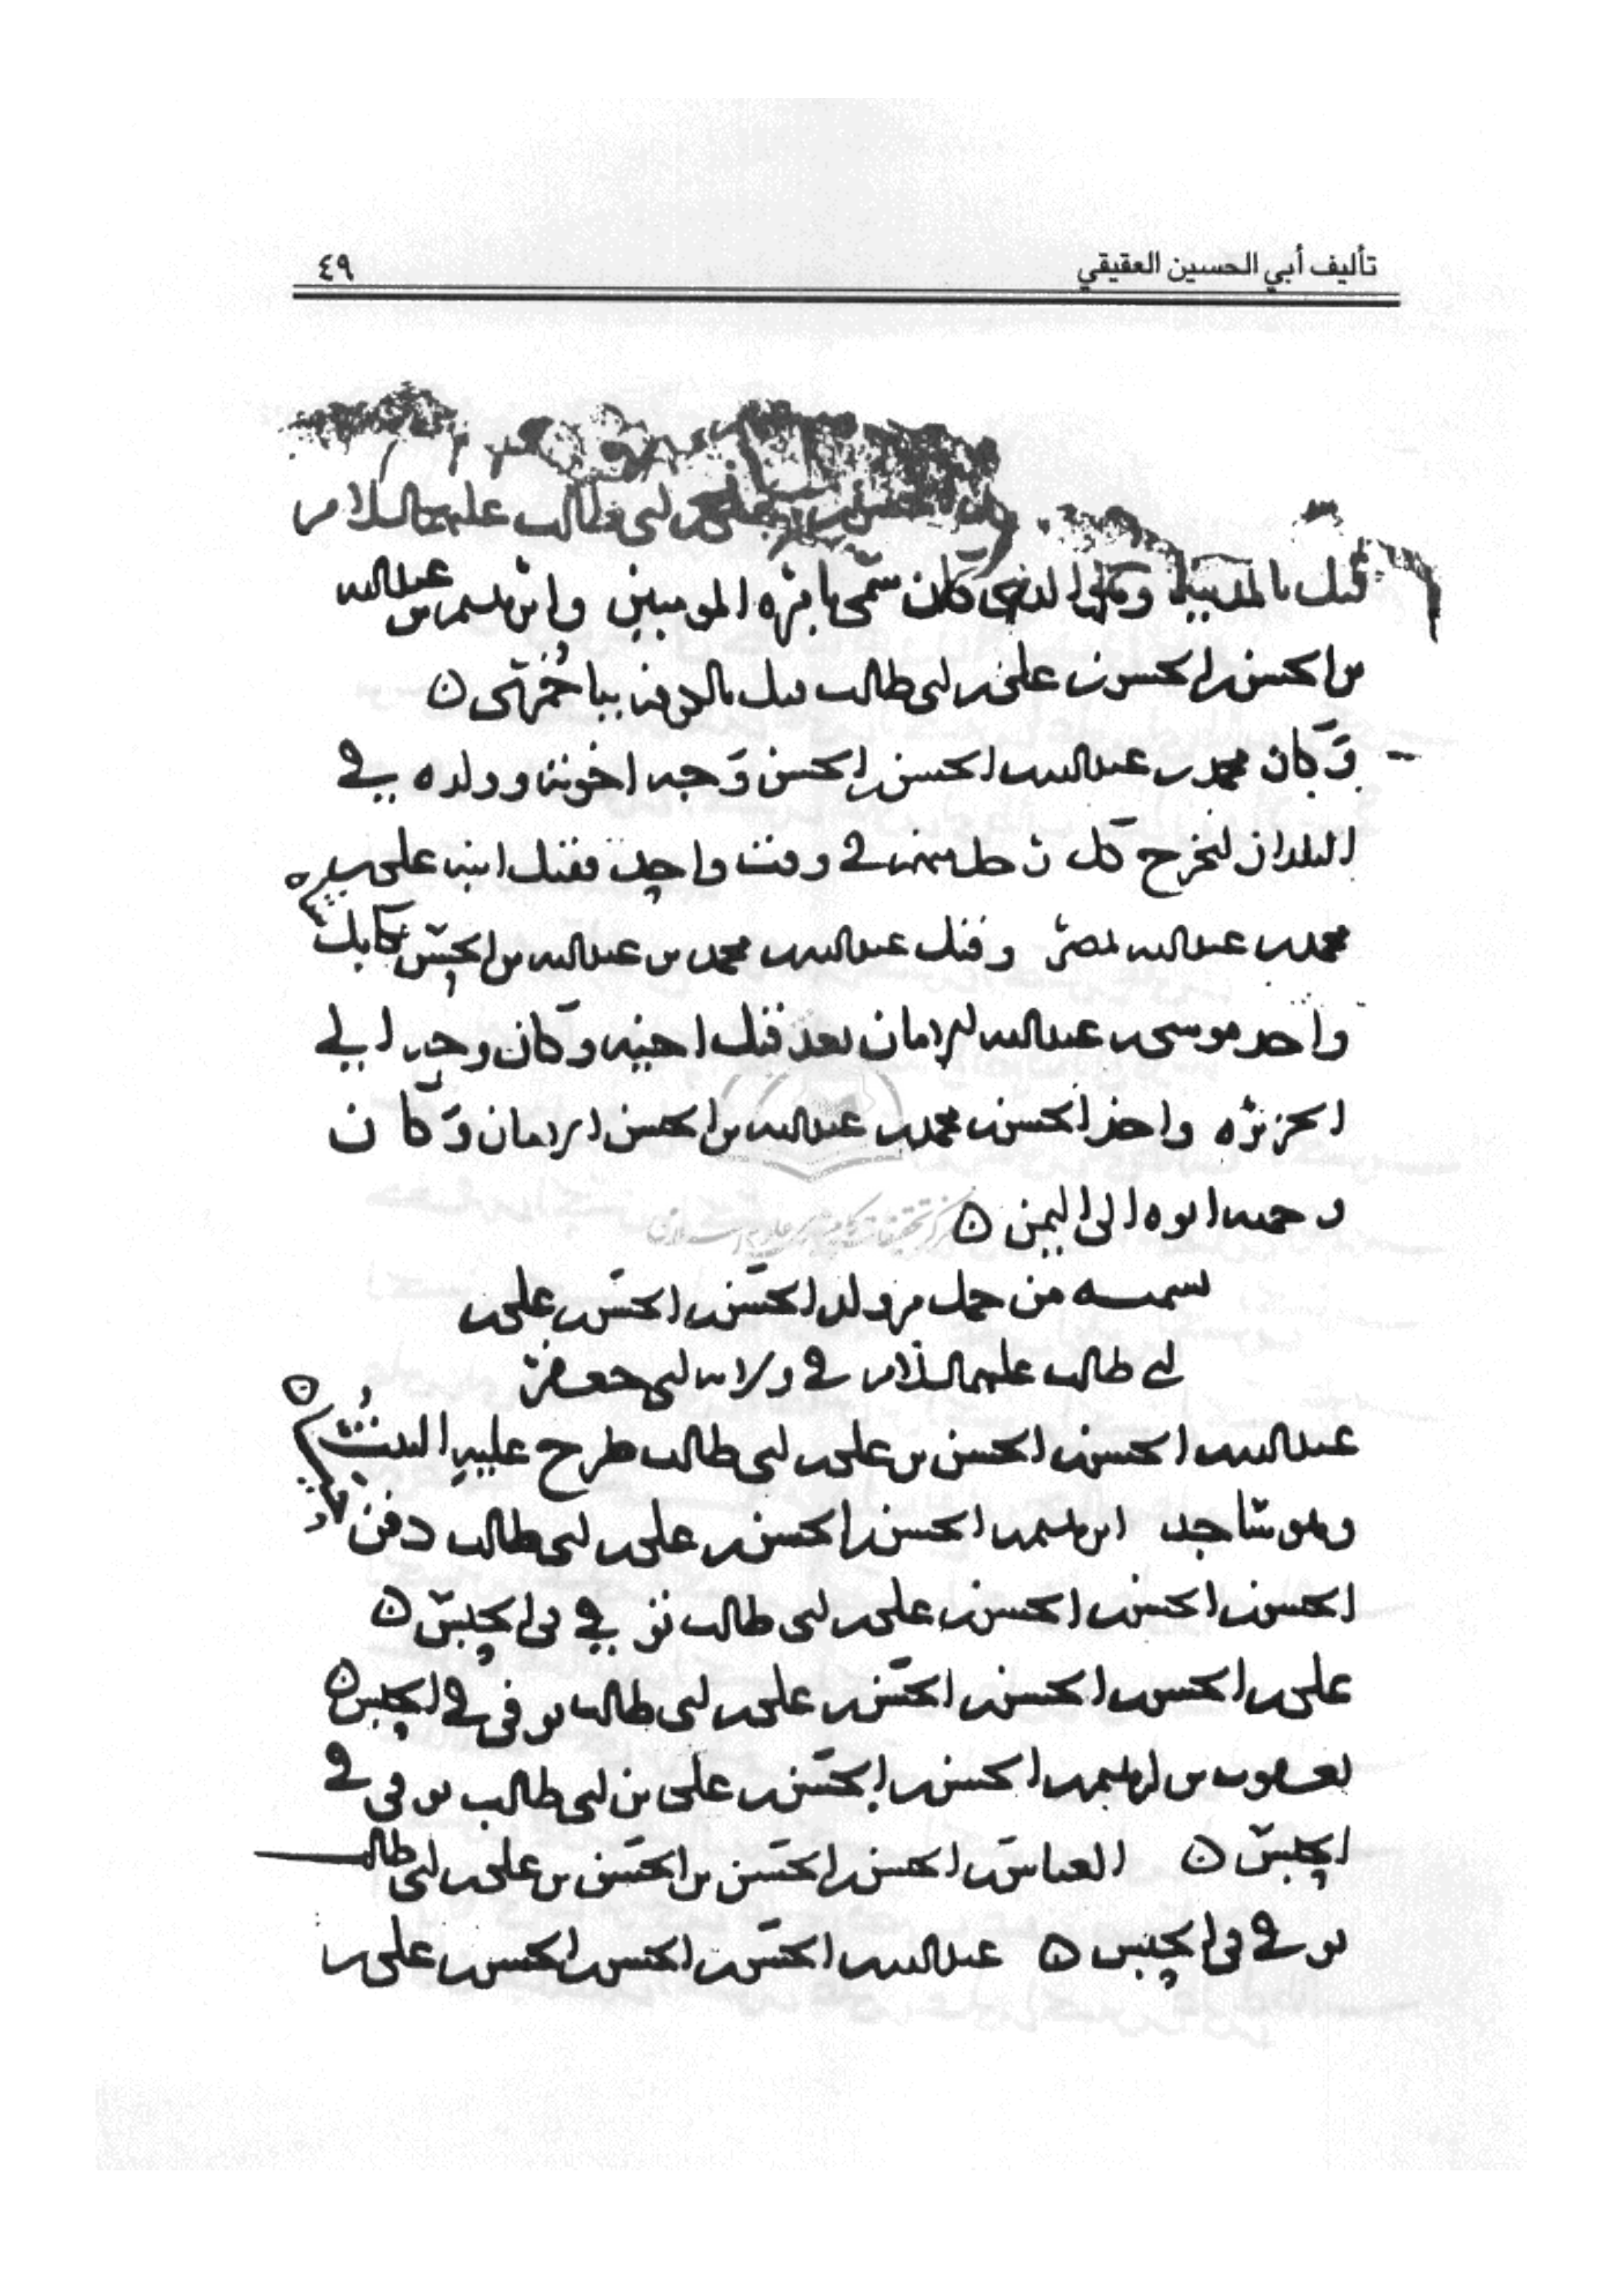 تأليف أبي الحسين العقيقي ٤٩
الحسن بن علي بن ابي طالب عليهم السلام
قتل بالمدينة وهو الذي كان سمي بامره المومنين وابرهيم بن عبدالله
بن الحسن بن الحسن بن علي بن ابي طالب قتل بالكوفه بباخمرى ن
وكان محمد بن عبدالله بن الحسن بن الحسن وجه اخوته وولده في
البلدان ليخرج كل رجل منهم في وقت واحد فقتل ابنه علي بن
محمد بن عبدالله بمصر وقتل عبدالله بن محمد بن عبدالله بن الحسن بكابل
واخذ موسى بن عبدالله الامان بعد قتل اخيه وكان وجه الى
الجزيره واخذ الحسن بن محمد بن عبدالله بن الحسن الامان وكان
وجهه ابوه الى اليمن ن
تسميه من حمل من ولد الحسن بن الحسن بن علي بن
ابي طالب عليهم السلام في ولايه ابي جعفر
عبدالله بن الحسن بن الحسن بن علي بن ابي طالب طرح عليه البيت
وهو ساجد ابرهيم بن الحسن بن الحسن بن علي بن ابي طالب دفن
الحسن بن الحسن بن الحسن بن علي بن ابي طالب توفي في الحبس ن
علي بن الحسن بن الحسن بن الحسن بن علي بن ابي طالب توفي في الحبس ن
يعقوب بن ابرهيم بن الحسن بن الحسن بن علي بن ابي طالب توفي في
الحبس ن العباس بن الحسن بن الحسن بن الحسن بن علي بن ابي طالب
توفي في الحبس ن عبدالله بن الحسن بن الحسن بن الحسن بن علي بن